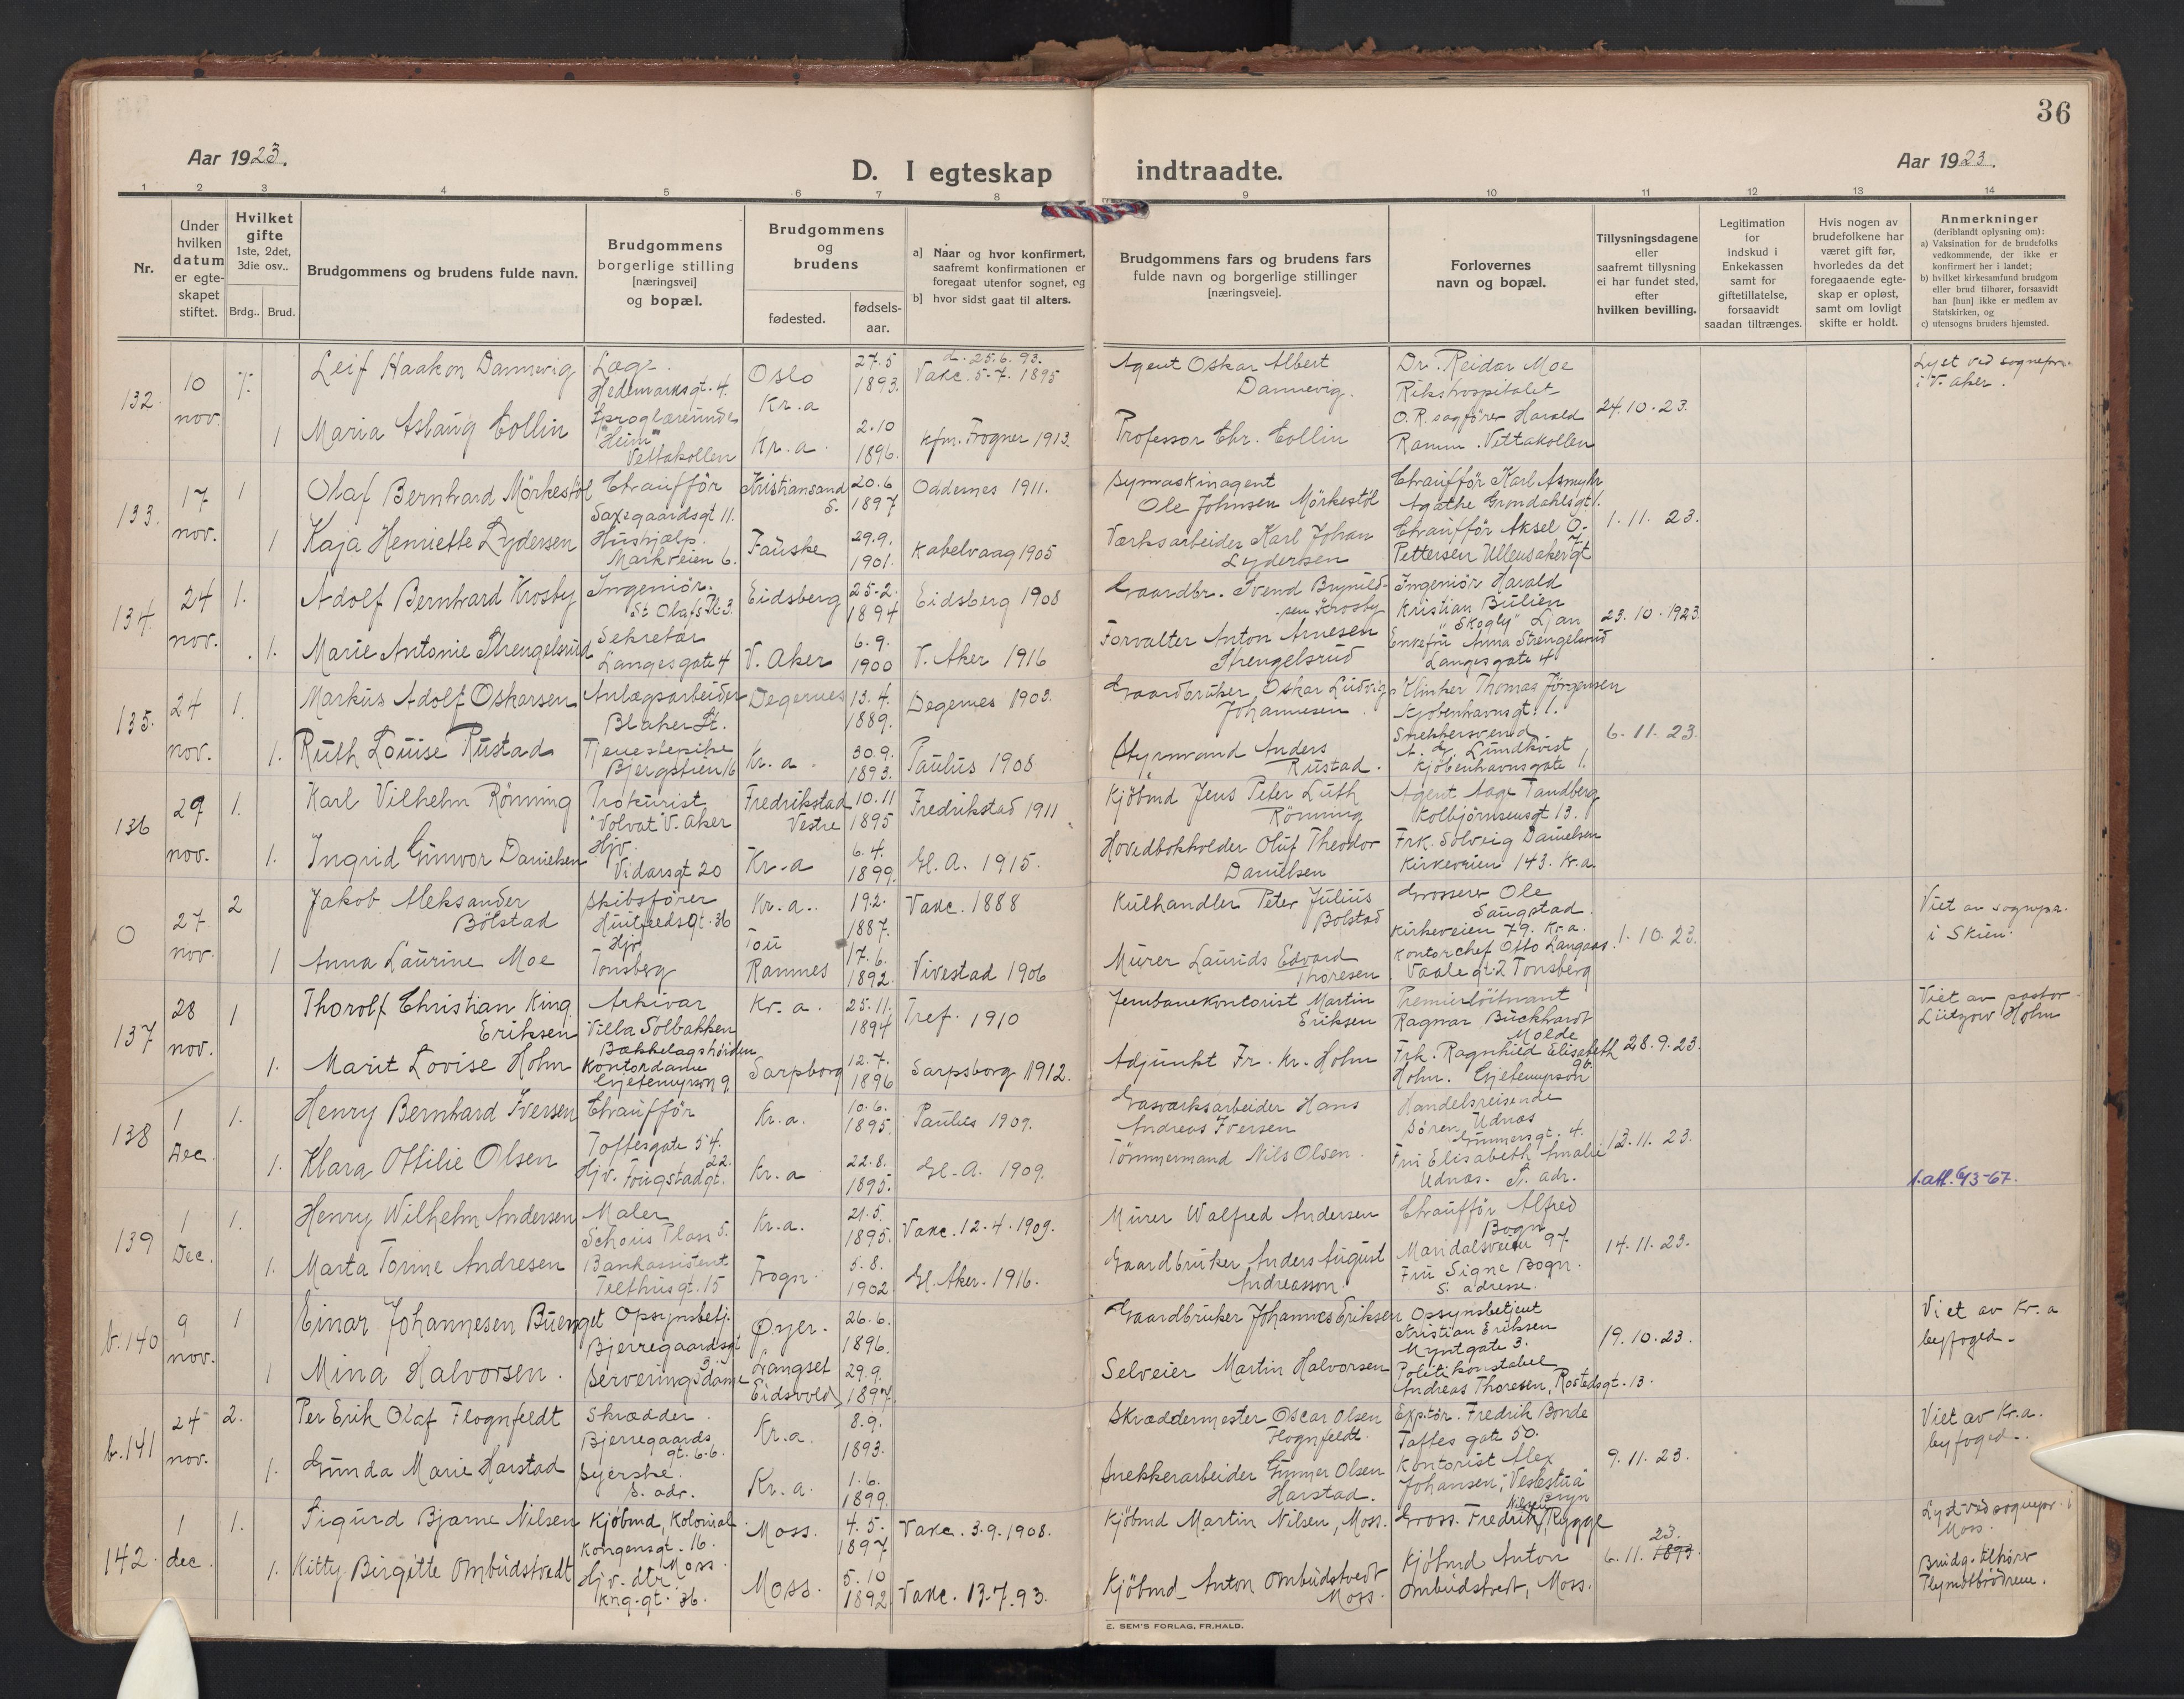 36
Aar 1923.
D. I egteskap indtraadte.
Aar 1923.
1 2 3 4 5 6 7 8 9 10 11 12 13 14
Nr.
Under hvilken datum er egte-skapet stiftet.
Hvilket gifte 1ste, 2det, 3die osv..
Brdg.. Brud.
Brudgommens og brudens fulde navn.
Brudgommens borgerlige stilling [næringsvei] og bopæl.
Brudgommens og brudens
fødested.
fødsels-aar.
a] Naar og hvor konfirmert, saafremt konfirmationen er foregaat utenfor sognet, og
b] hvor sidst gaat til alters.
Brudgommens fars og brudens fars fulde navn og borgerlige stillinger [næringsveie].
Forlovernes navn og bopæl.
Tillysningsdagene eller saafremt tillysning ei har fundet sted, efter hvilken bevilling.
Legitimation for Indskud i Enkekassen samt for giftetillatelse, forsaavidt saadan tiltrænges.
Hvis nogen av brudefolkene har været gift før, hvorledes da det foregaaende egte-skap er opløst, samt om lovligt skifte er holdt.
Anmerkninger (deriblandt oplysning om):
a) Vaksination for de brudefolks vedkommende, der ikke er konfirmert her i landet;
b) hvilket kirkesamfund brudgom eller brud tilhører, forsaavidt han [hun] ikke er medlem av Statskirken, og
c) utensogns bruders hjemsted.
132. 10 nov.
Leif Haakon Dannevig
Læge. Hedemarksgt. 4.
Oslo Kr.a
27.5 1893.
d. 25.6.93. Vakc. 5-7. 1895
Agent Oskar Albert Dannevig.
Dr. Reidar Moe Rikshospitalet
24.10.23.
1 Maria Aslaug Collin
Sproglærerinde "Heim" Vettakollen
Kr.a.
2.10 1896.
Kfm. Frogner 1913.
Professor Chr. Collin
O.R. sagfører Harald Ramm. Vettakollen
133. 17 nov. 1
Olaf Bernhard Mörkestöl
Chauffför Saxegaardsgt 11.
Kristiansand S.
20.6 1897
Oddernes 1911.
Symaskinagent Ole Johnsen Mörkestöl
Chauffför Karl Asmyhr Agathe Grondahlsgt 1.
1.11.23.
1 Kaja Henriette Lydersen
Hushjælp. Markveien 6.
Fauske
29.9. 1901.
Kabelvaag 1905
Værksarbeider Karl Johan Lydersen
Chauffför Aksel O. Pettersen Ullensakergt
134. 24 nov. 1.
Adolf Bernhard Krosby
Ingeniör. St Olafs Pl. 3.
Eidsberg
25-2. 1894
Eidsberg 1908
Gaardbr. Svend Brynild-sen Krosby
Ingeniör Harald Kristian Bülien "Skogly" Ljan
23.10.1923.
1. Marie Antonie Strengelsrud
Sekretær Langesgate 4
V. Aker
6.9. 1900
V. Aker 1916
Forvalter Anton Arnesen Strengelsrud
Enkefru Anna Strengelsrud Langesgate 4
135. 24 nov. 1.
Markus Adolf Oskarsen
Anlægsarbeider Blaker St.
Degernes
13.4. 1889.
Degernes 1903.
Gaardbruker Oskar Ludvig Johannesen
Klinker Thomas Jörgensen Kjøbenhavnsgt. 1.
6.11.23.
1. Ruth Louise Rustad
Tjenestepike Bjergstien 16
Kr.a.
30.9. 1893.
Paulus 1908
Styrmand Anders Rustad.
Snekkersvend A. L. Lundkvist Kjøbenhavnsgate 1.
136 29 nov. 1.
Karl Vilhelm Rönning
Prokurist "Volvat" V. Aker
Fredrikstad Vestre
10.11 1895
Fredrikstad 1911
Kjöbmd Jens Peter Luth Rönning
Agent Aage Tandberg Kolbjörnsensgt 13.
1. Ingrid Gunvor Danielsen
Hjv. Vidarsgt 20
Kr.a
6.4. 1899.
Gl. A. 1915.
Hovedbokholder Oluf Theodor Danielsen
Frk. Solveig Danielsen Kirkeveien 143. Kr.a.
O 27 nov. 2
Jakob Aleksander Bölstad
Skibsförer Huitfeedsgt. 36
Kr.a..
19.2. 1887.
Vakc. 1888
Kulhandler Peter Julius Bolstad
Grosserer Ole Saugstad. Kirkeveien 79. Kr.a.
1.10.23.
Viet av sognepr. i Skien.
1 Anna Laurine Moe
Hjv Tönsberg
Tou Ramnes
17.6. 1892
Vivestad 1906
Murer Laurids Edvard Thoresen
Kontorchef Otto Langaas. Vaale gt. 2 Tonsberg
137 28 nov. 1
Thorolf Christian King Eriksen
Arkivar Villa Solbakken Bækkelagshöiden
Kr.a.
25.11. 1894
Tref. 1910
Jernbanekontorist Martin Eriksen
Premierlöitnant Ragnar Buckhardt Molde
28.9.23.
Viet av pastor Lützow Holm
1. Marit Lovise Holm
Kontordame Gjetemyrson 9
Sarpborg
12.7. 1896
Sarpsborg 1912.
Adjunkt Fr. Kr. Holm
Frk. Ragnhild Elisabeth Holm. Gjetemyrson 9b.
138 1 Dec. 1.
Henry Bernhard Iversen
Chauffför Toftesgate 54.
Kr.a.
10.6. 1895.
Paulus 1909.
Gasværksarbeider Hans Andreas Iversen
Handelsreisende Sören Udnæs Grünersgt. 4.
13.11.23.
1. Klara Ottilie Olsen
Hjv. Fougstadgt. 22.
Kr.a
22.8. 1895.
Gl. A. 1909.
Tömmermand Nils Olsen.
Fru Elisabeth Amalie Udnæs. S. adr.
1.att. 643-67.
139 1 Dec. 1.
Henry Wilhelm Andersen
Maler Schous Plass 5.
Kr.a.
21.5. 1895.
Vakc. 12.4.1909.
Murer Walfred Andersen
Chauffför Alfred Bogn Maridalsveien 97.
14.11.23.
1. Marta Torine Andresen
Bankassistent Telthusgt. 15
Frogn.
5.8. 1902
Gl. Aker. 1916.
Gaardbruker Anders August Andreasson.
Fru Signe Bogn. S. adresse.
b.140 9 nov. 1
Einar Johannesen Buenget
Opsynsbetj. Bjerregaardsgt 3.
Øyer.
26.6. 1896.
Gaardbruker Johannes Eriksen
Opsynsbetjent Kristian Eriksen Myntgate 3.
19.10.23.
Viet av Kr.a byfoged.
1 Mina Halvorsen.
Serveringsdame
Langset Eidsvold
29.9. 1897
Selveier Martin Halvorsen
Politikonstabel Andreas Thoresen, Rostedsgt. 13.
b.141 24 nov. 2.
Per Erik Olaf Flognfeldt
Skrædder. Bjerregaards gt. 66.
Kr.a.
8.9. 1893.
Skræddermester Oscar Olsen Flognfeldt.
Exp.tör. Fredrik Bonde Toftes gate 50.
9.11.23.
Viet av Kr.a. byfoged.
1. Gunda Marie Harstad
Syerske. S. adr.
Kr.a.
1.6. 1899.
Snekkerarbeider Gunner Olsen Harstad.
Kontorist Alex Johansen, "Veslestua" Bryn
142. 1 dec. 1.
Sigurd Bjarne Nilsen
Kjöbmd, Kolonial. Kongensgt. 16. Moss.
Moss.
4.5. 1897
Vakc. 3.9.1908.
Kjöbmd Martin Nilsen, Moss.
Gross. Fredrik Nilsen, Rygge
6.11. 1893. 23.
Lyst ved sognepr. i Moss.
1. Kitty Birgitte Ombudstvedt
Hjv. dtr. Kng.gt. 36.
Moss.
5.10 1892
Vakc. 13.7.93.
Kjöbmd Anton Ombudstvedt Moss.
Kjöbmd Anton Ombudstvedt, Moss.
Brudg. tilhører Plymuthbrødrene.
E. SEM'S FORLAG, FR.HALD.